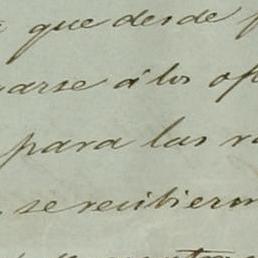 que desde
arse á los of
para las
se recibieron